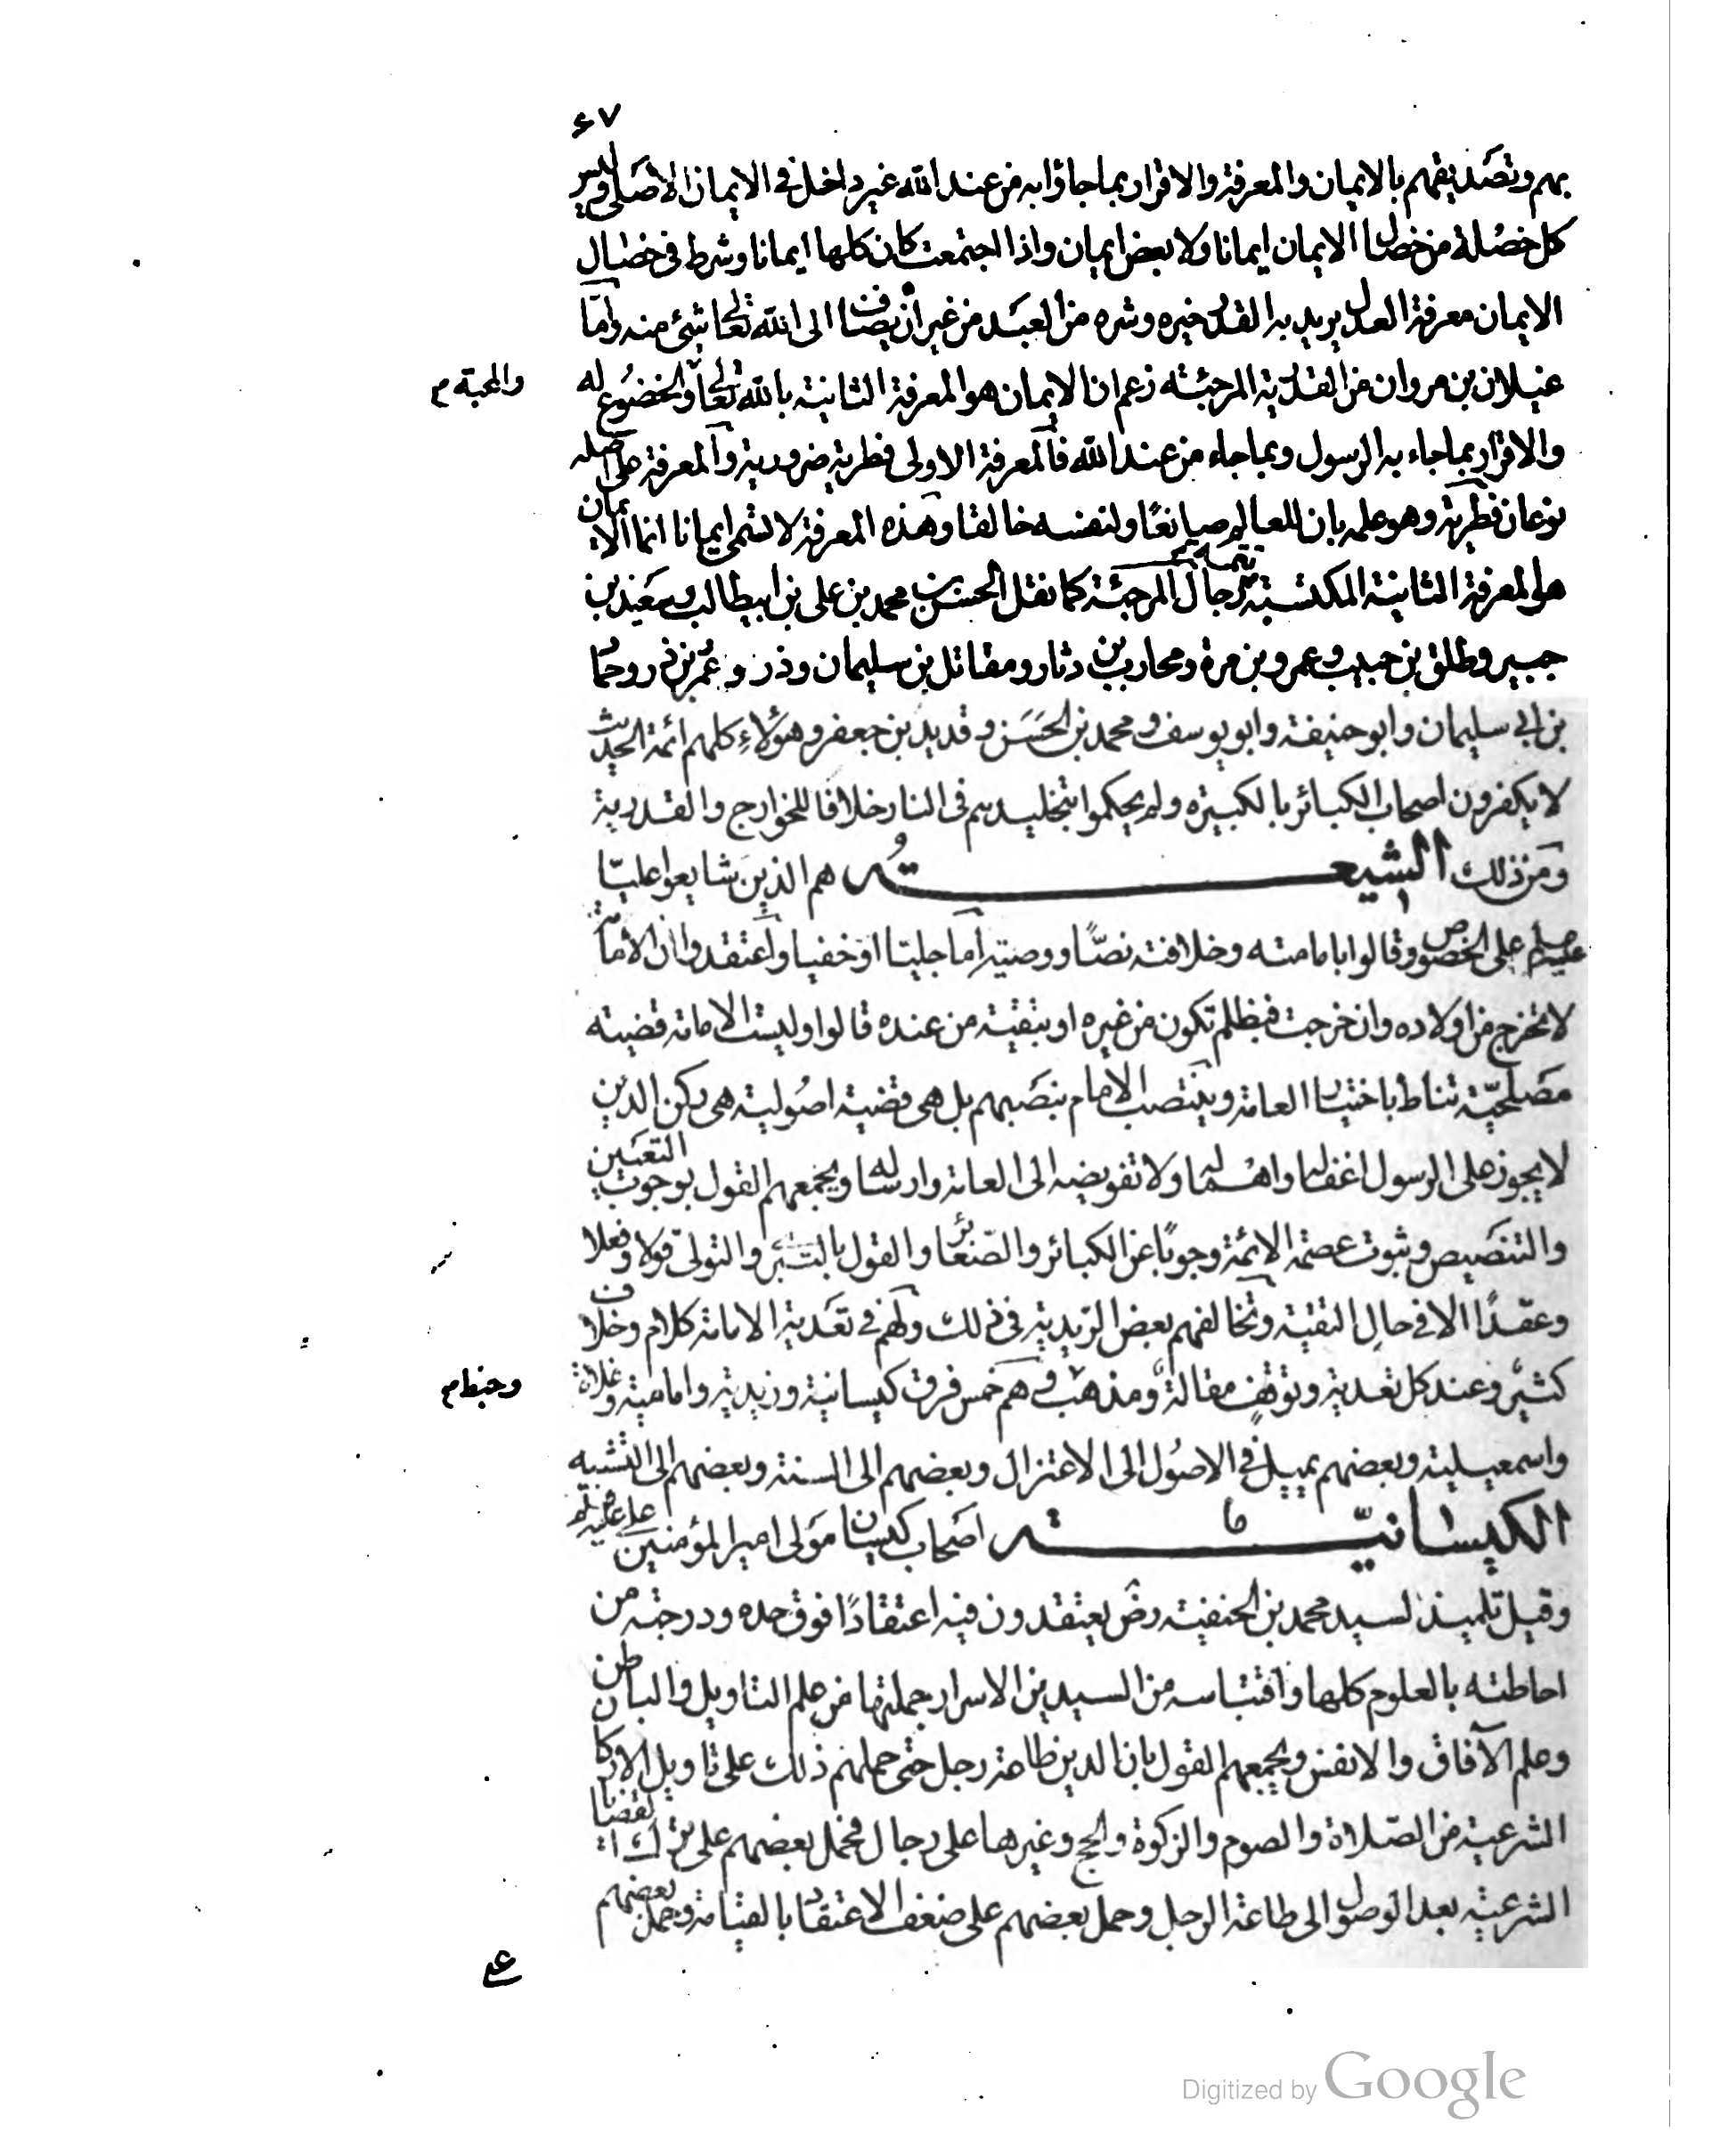 ٤٧
بهم وتصديقهم بالايمان والمعرفة والاقرار بما جاؤا به من عند الله غير داخل في الايمان الاصلي وليس
كل خصلة من خصال الايمان ايمانا ولا بعض ايمان واذا اجتمعت كان كلها ايمانا وشرط في خصال
الايمان معرفة العدل يريد به القدر خيره وشره من العبد من غير ان يضاف الى الله تعالى شئ منه واما
غيلان بن مروان من القدرية المرجئة زعم ان الايمان هو المعرفة الثانية بالله تعالى والخضوع له
والمحبة م
والاقرار بما جاء به الرسول وبما جاء من عند الله فالمعرفة الاولى فطرية ضرورية والمعرفة على اصله
نوعان فطرية وهو علمه بان للعالم صانعا ولنفسه خالقا وهذه المعرفة لا تسمى ايمانا انما الايمان
هو المعرفة الثانية المكتسبة تتمة رجال المرجئة كما نقل الحسن بن محمد بن علي بن ابيطالب وسعيد بن
جبير وطلق بن حبيب وعمرو بن مرة ومحارب بن دثار ومقاتل بن سليمان وذر وعمر بن ذر وحماد
بن ابي سليمان وابو حنيفة وابو يوسف ومحمد بن الحسن وقديد بن جعفر وهؤلاء كلهم ائمة الحديث
لا يكفرون اصحاب الكبائر بالكبيرة ولم يحكموا بتخليدهم في النار خلافا للخوارج والقدرية
ومن ذلك الشيعة هم الذين شايعوا عليا
على الخصوص وقالوا بامامته وخلافته نصا ووصية اما جليا او خفيا واعتقدوا ان الامامة
لا تخرج من اولاده وان خرجت فبظلم تكون من غيره او بتقية من عنده قالوا وليست الامامة قضية
مصلحية تناط باختيار العامة وينتصب الامام بنصبهم بل هي قضية اصولية هي ركن الدين
لا يجوز على الرسول اغفاله واهماله ولا تفويضه الى العامة وارساله ويجمعهم القول بوجوب التعيين
والتنصيص وثبوت عصمة الائمة وجوبا عن الكبائر والصغائر والقول بالتبرئ والتولي قولا وفعلا
وعقدا الا في حال التقية وتخالفهم بعض الزيدية في ذلك ولهم في تعدية الامامة كلام وخلاف
كثير وعند كل تعدية وتوقف مقالة ومذهب وهم خمس فرق كيسانية وزيدية وامامية وغلاة
وخبط م
واسمعيلية وبعضهم يميل في الاصول الى الاعتزال وبعضهم الى السنة وبعضهم الى التشبيه
الكيسانية اصحاب كيسان مولى امير المؤمنين علي
وقيل تلميذ لسيد محمد بن الحنفية رض يعتقدون فيه اعتقادا فوق حده ودرجته من
احاطته بالعلوم كلها واقتباسه من السيدين الاسرار جملتها من علم التاويل والباطن
وعلم الآفاق والانفس ويجمعهم القول بان الدين طاعة رجل حتى حملهم ذلك على تاويل الاركان
الشرعية من الصلاة والصوم والزكوة والحج وغيرها على رجال فحمل بعضهم على ترك القضايا
الشرعية بعد الوصول الى طاعة الرجل وحمل بعضهم على ضعف الاعتقاد بالقيامة وحمل بعضهم
Digitized by Google